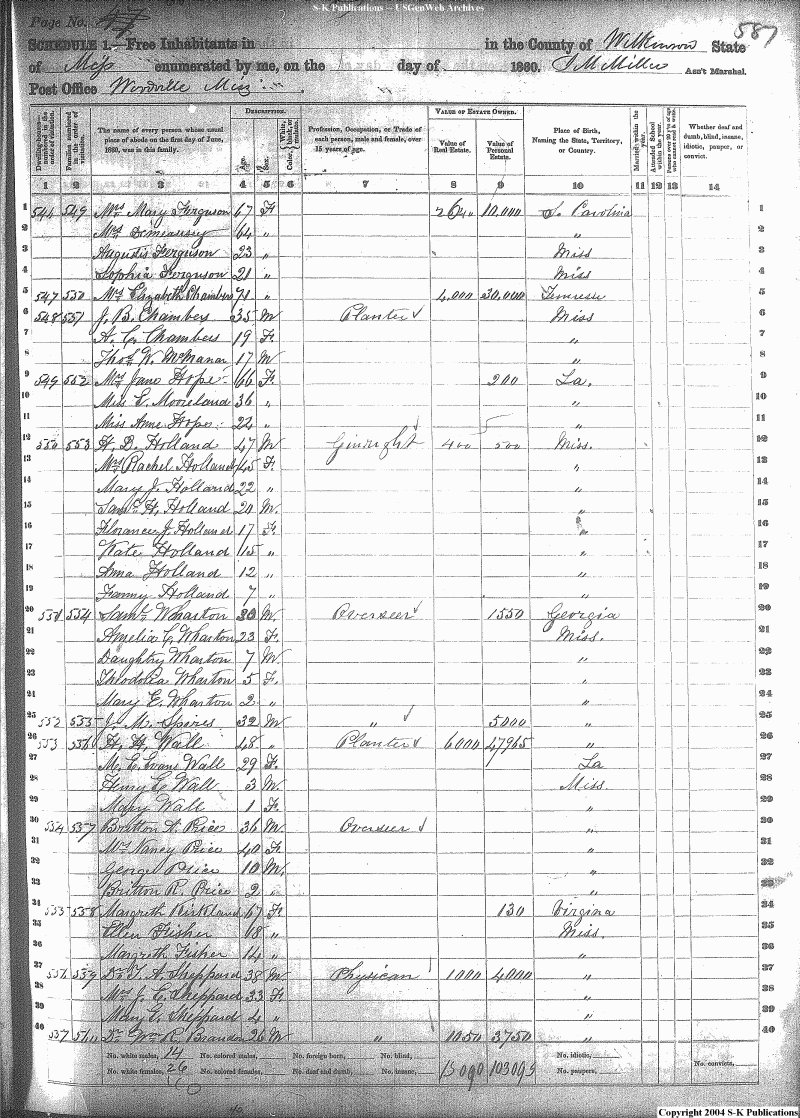 S-K Publications -- USGenWeb Archives
Page No. 47
587
SCHEDULE 1.—Free Inhabitants in in the County of Wilkinson State
of Miss enumerated by me, on the day of 1860. Ass't Marshal.
Post Office Woodville Miss
Dwelling-houses—numbered in the order of visitation.
Families numbered in the order of visitation.
The name of every person whose usual place of abode on the first day of June, 1860, was in this family.
DESCRIPTION.
Age.
Sex.
Color, White, black, or mulatto.
Profession, Occupation, or Trade of each person, male and female, over 15 years of age.
VALUE OF ESTATE OWNED.
Value of Real Estate.
Value of Personal Estate.
Place of Birth, Naming the State, Territory, or Country.
Married within the year.
Attended School within the year.
Persons over 20 y'rs of age who cannot read & write.
Whether deaf and dumb, blind, insane, idiotic, pauper, or convict.
1 2 3 4 5 6 7 8 9 10 11 12 13 14
1 546 549 Mrs Mary Ferguson 67 F 2640 10,000 S. Carolina 1
2 Mrs 64 " " 2
3 Augustis Ferguson 23 " Miss 3
4 Sophia Ferguson 21 " Miss 4
5 547 550 Mrs Elizabeth Chambers 71 " 4,000 30,000 Tennessee 5
6 548 551 J. B. Chambers 35 M Planter Miss 6
7 A. C. Chambers 19 F. " 7
8 Thos W. McManar 17 M " 8
9 549 552 Mrs Jane Hope 66 F. 200 La. 9
10 Miss E. Mooreland 36 " " 10
11 Miss Anne Hope 22 " " 11
12 550 553 H. D. Holland 47 M Ginwright 400 500 Miss. 12
13 Mrs Rachel Holland 45 F. " 13
14 Mary J. Holland 22 " " 14
15 Saml H. Holland 20 M. " 15
16 Florance J. Holland 17 F. " 16
17 Kate Holland 15 " " 17
18 Anna Holland 12 " " 18
19 Fanny Holland 7 " " 19
20 551 554 Saml Wharton 30 M. Overseer 1550 Georgia 20
21 Amelia C. Wharton 23 F. Miss. 21
22 Daughtry Wharton 7 M. " 22
23 Theodolia Wharton 5 F. " 23
24 Mary E. Wharton 2 " " 24
25 552 555 J. M. Spires 32 M " 5000 " 25
26 553 556 H. H. Wall 48 " Planter 6000 47965 " 26
27 M. E. Evans Wall 29 F. La 27
28 Henry C. Wall 3 M. Miss. 28
29 Mary Wall 1 F. " 29
30 554 557 Britton A. Price 36 M. Overseer " 30
31 Mrs Nancy Price 40 F. " 31
32 George Price 10 M. " 32
33 Britton R. Price 2 " " 33
34 555 558 Margreth Kirkland 67 F. 130 Virgina 34
35 Ellen Fisher 18 " Miss. 35
36 Margreth Fisher 14 " " 36
37 556 559 Dr T. A. Sheppard 38 M Physican 1000 4000 " 37
38 Mrs J. C. Sheppard 33 F. " 38
39 Mary E. Sheppard 4 " " 39
40 557 560 Dr Wm R. Brandon 26 M " 1050 3750 " 40
No. white males, 14 No. colored males, No. foreign born, No. blind, No. idiotic,
No. white females, 26 No. colored females, No. deaf and dumb, No. insane, 15090 103095 No. paupers, No. convicts,
Copyright 2004 S-K Publications